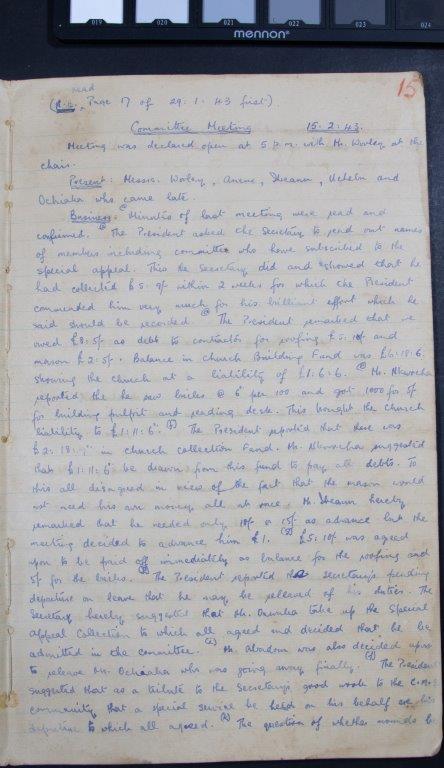 019 020 021 022 023 024
mennon
15
read
(N.B. Page 17 of 29.1.43 first).
Committee Meeting 15.2.43.
Meeting was declared open at 5 p.m. with Mr. Worley at the
chair.
Present: Messrs. Worley, Anene, Ibeanu, Uchebu and
Ochiaka who came late.
Business: Minutes of last meeting were read and
confirmed. The President asked the Secretary to read out names
of members including committee who have subscribed to the
special appeal. This the Secretary did and showed that he
had collected £5. 9/- within 2 weeks for which the President
commended him very much for his brilliant effort which he
said should be recorded. The President remarked that we
owed £8:5/- as debt to contractor for roofing £5:10/- and
mason £2:5/-. Balance in Church Building Fund was £6:18:6
showing the church at a liability of £1:6:6. Mr. Nkwocha
reported that he saw bricks @ 6d per 100 and got 1000 for 5/-
for building pulpit and reading desk. This brought the Church
liability to £1:11:6. The President reported that there was
£2:18: in church collection Fund. Mr. Nkwocha suggested
that £1:11:6d be drawn from this fund to pay all debts. To
this all disagreed in view of the fact that the mason would
not need his own money all at once. Mr. Ibeanu hereby
remarked that he needed only 10/- or 15/- as advance but the
meeting decided to advance him £1. £5:10/- was agreed
upon to be paid off immediately as balance for the roofing and
5/- for the bricks. The President reported the secretary's pending
departure on leave that he may be relieved of his duties. The
Secretary hereby suggested that Mr. take up the Special
Appeal Collection to which all agreed and decided that he be
admitted in the committee. Mr. Abadom was also decided upon
to relieve Mr. Ochiaka who was going away finally. The President
suggested that as a tribute to the Secretary's good work to the C.M.S
community that a special service be held on his behalf ere his
departure to which all agreed. The question of whether